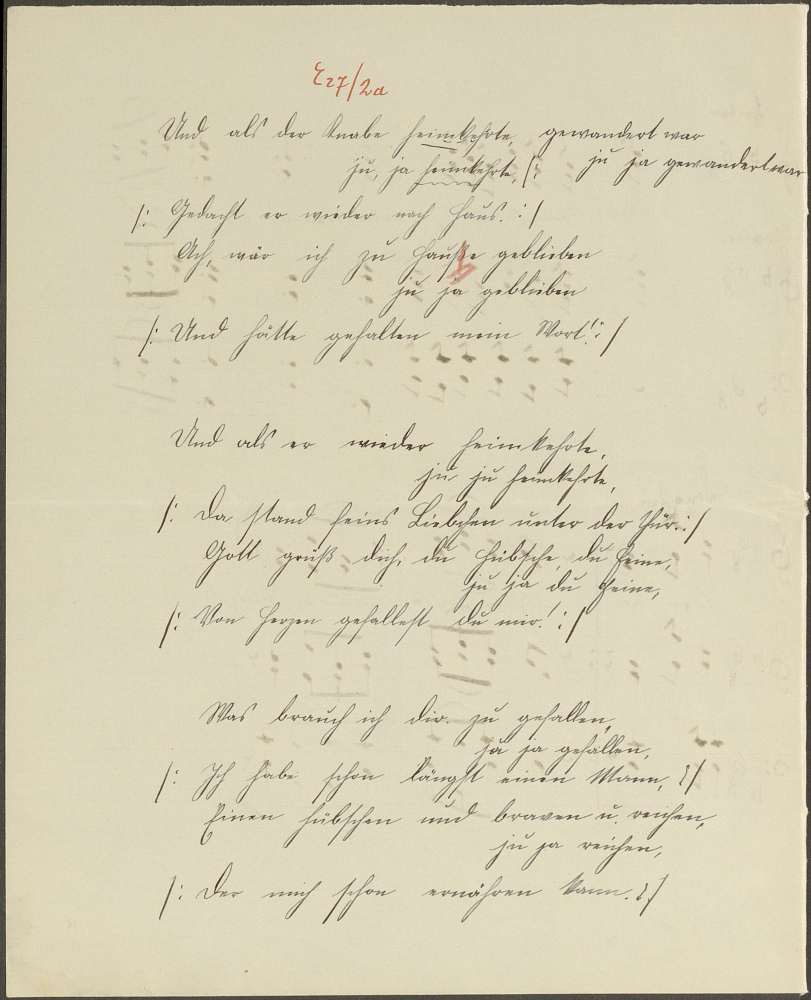 E27/2a
Und als der Knabe heimkehrte, gewandert war
ju, ja heimkehrte, /: ju ja gewandert war
/: Gedacht er wieder nach Haus. :/
Ach, wär ich zu Hauße geblieben
ju ja geblieben
/: Und hätte gehalten mein Wort! :/
Und als er wieder heimkehrte,
ju ju heimkehrte,
/: Da stand feins Liebchen unter der Thür. :/
Gott grüß dich, du Hübsche, du Feine,
ju ja du Feine,
/: Von Herzen gefallest du mir! :/
Was brauch ich dir zu gefallen,
ju ja gefallen,
/: Ich habe schon längst einen Mann, :/
Einen hübschen und braven u. reichen,
ju ja reichen,
/: Der mich schon ernähren kann. :/